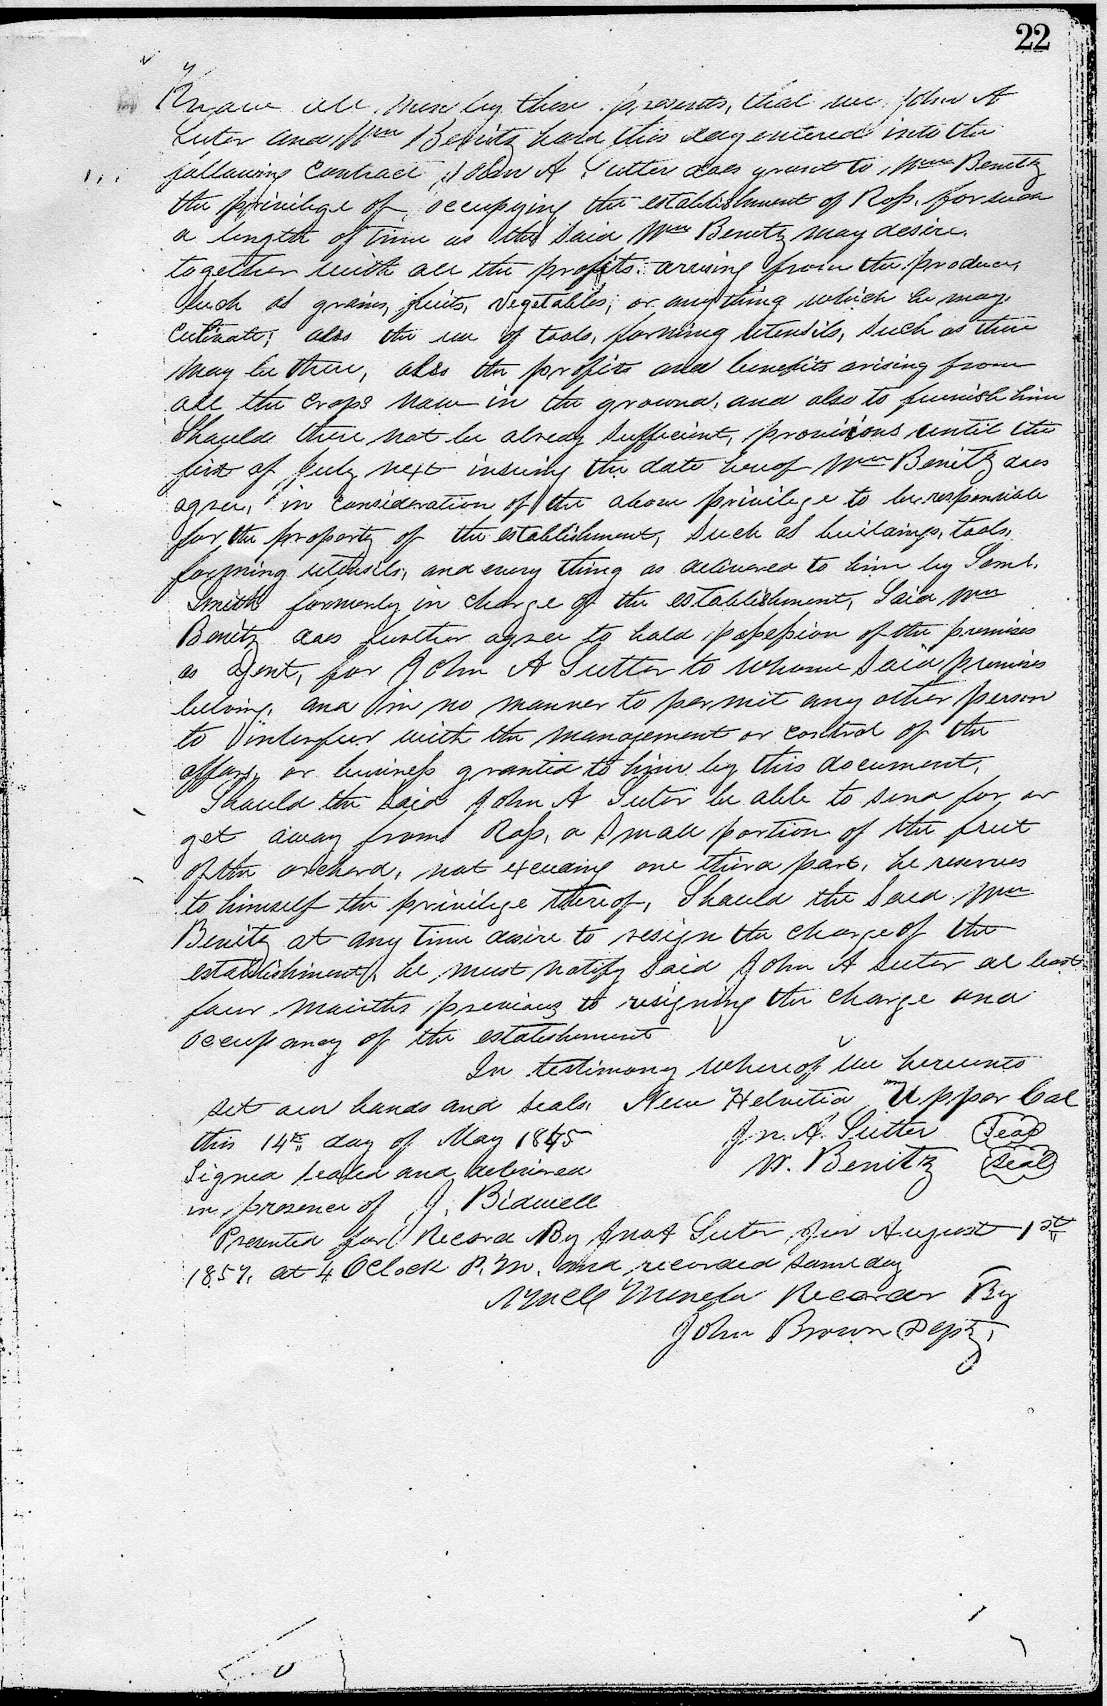 22
Know all men by these presents, that we John A
Suter and Wm Benitz have this day entered into the
following Contract, John A Sutter does grant to Wm Benitz
the privilege of occupying the establishment of Ross, for such
a length of time as the said Wm Benitz may desire.
together with all the profits arising from the produce,
such as grains, fruits, vegetables, or any thing which he may
cultivate; also the use of tools, farming utensils, such as there
may be there, also the profits and benefits arising from
all the crops now in the ground, and also to furnish him
should there not be already sufficient, provisions until the
first of July next insuing the date hereof Wm Benitz does
agree, in consideration of the above privilege to be responsible
for the property of the establishment, such as buildings, tools,
farming utensils, and every thing as delivered to him by Saml.
Smith formerly in charge of the establishment, Said Wm
Benitz does further agree to hold possession of the premises
as agent, for John A Sutter to whome said premises
belong, and in no manner to permit any other person
to interfeer with the management or control of the
affairs, or business granted to him by this document.
Should the said John A Suter be able to send for or
get away from Ross, a small portion of the fruit
of the orchard, not exceeding one third part, he reserves
to himself the privilege thereof, Should the said Wm
Benitz at any time desire to resign the charge of the
establishment, he must notify said John A Suter at least
four months previous to resigning the charge and
occupancy of the establishment
In testimony whereof we hereunto
set our hands and seals New Helvetia Upper Cal
this 14th day of May 1845 Jn. A. Sutter Seal
Signed sealed and delivered W. Benitz Seal
in presence of J. Bidwell
Presented for Record By Jno A Suter Jur August 1st
1857, at 4 OClock P.M. and recorded same day
Recorder By
John Brown Depty,